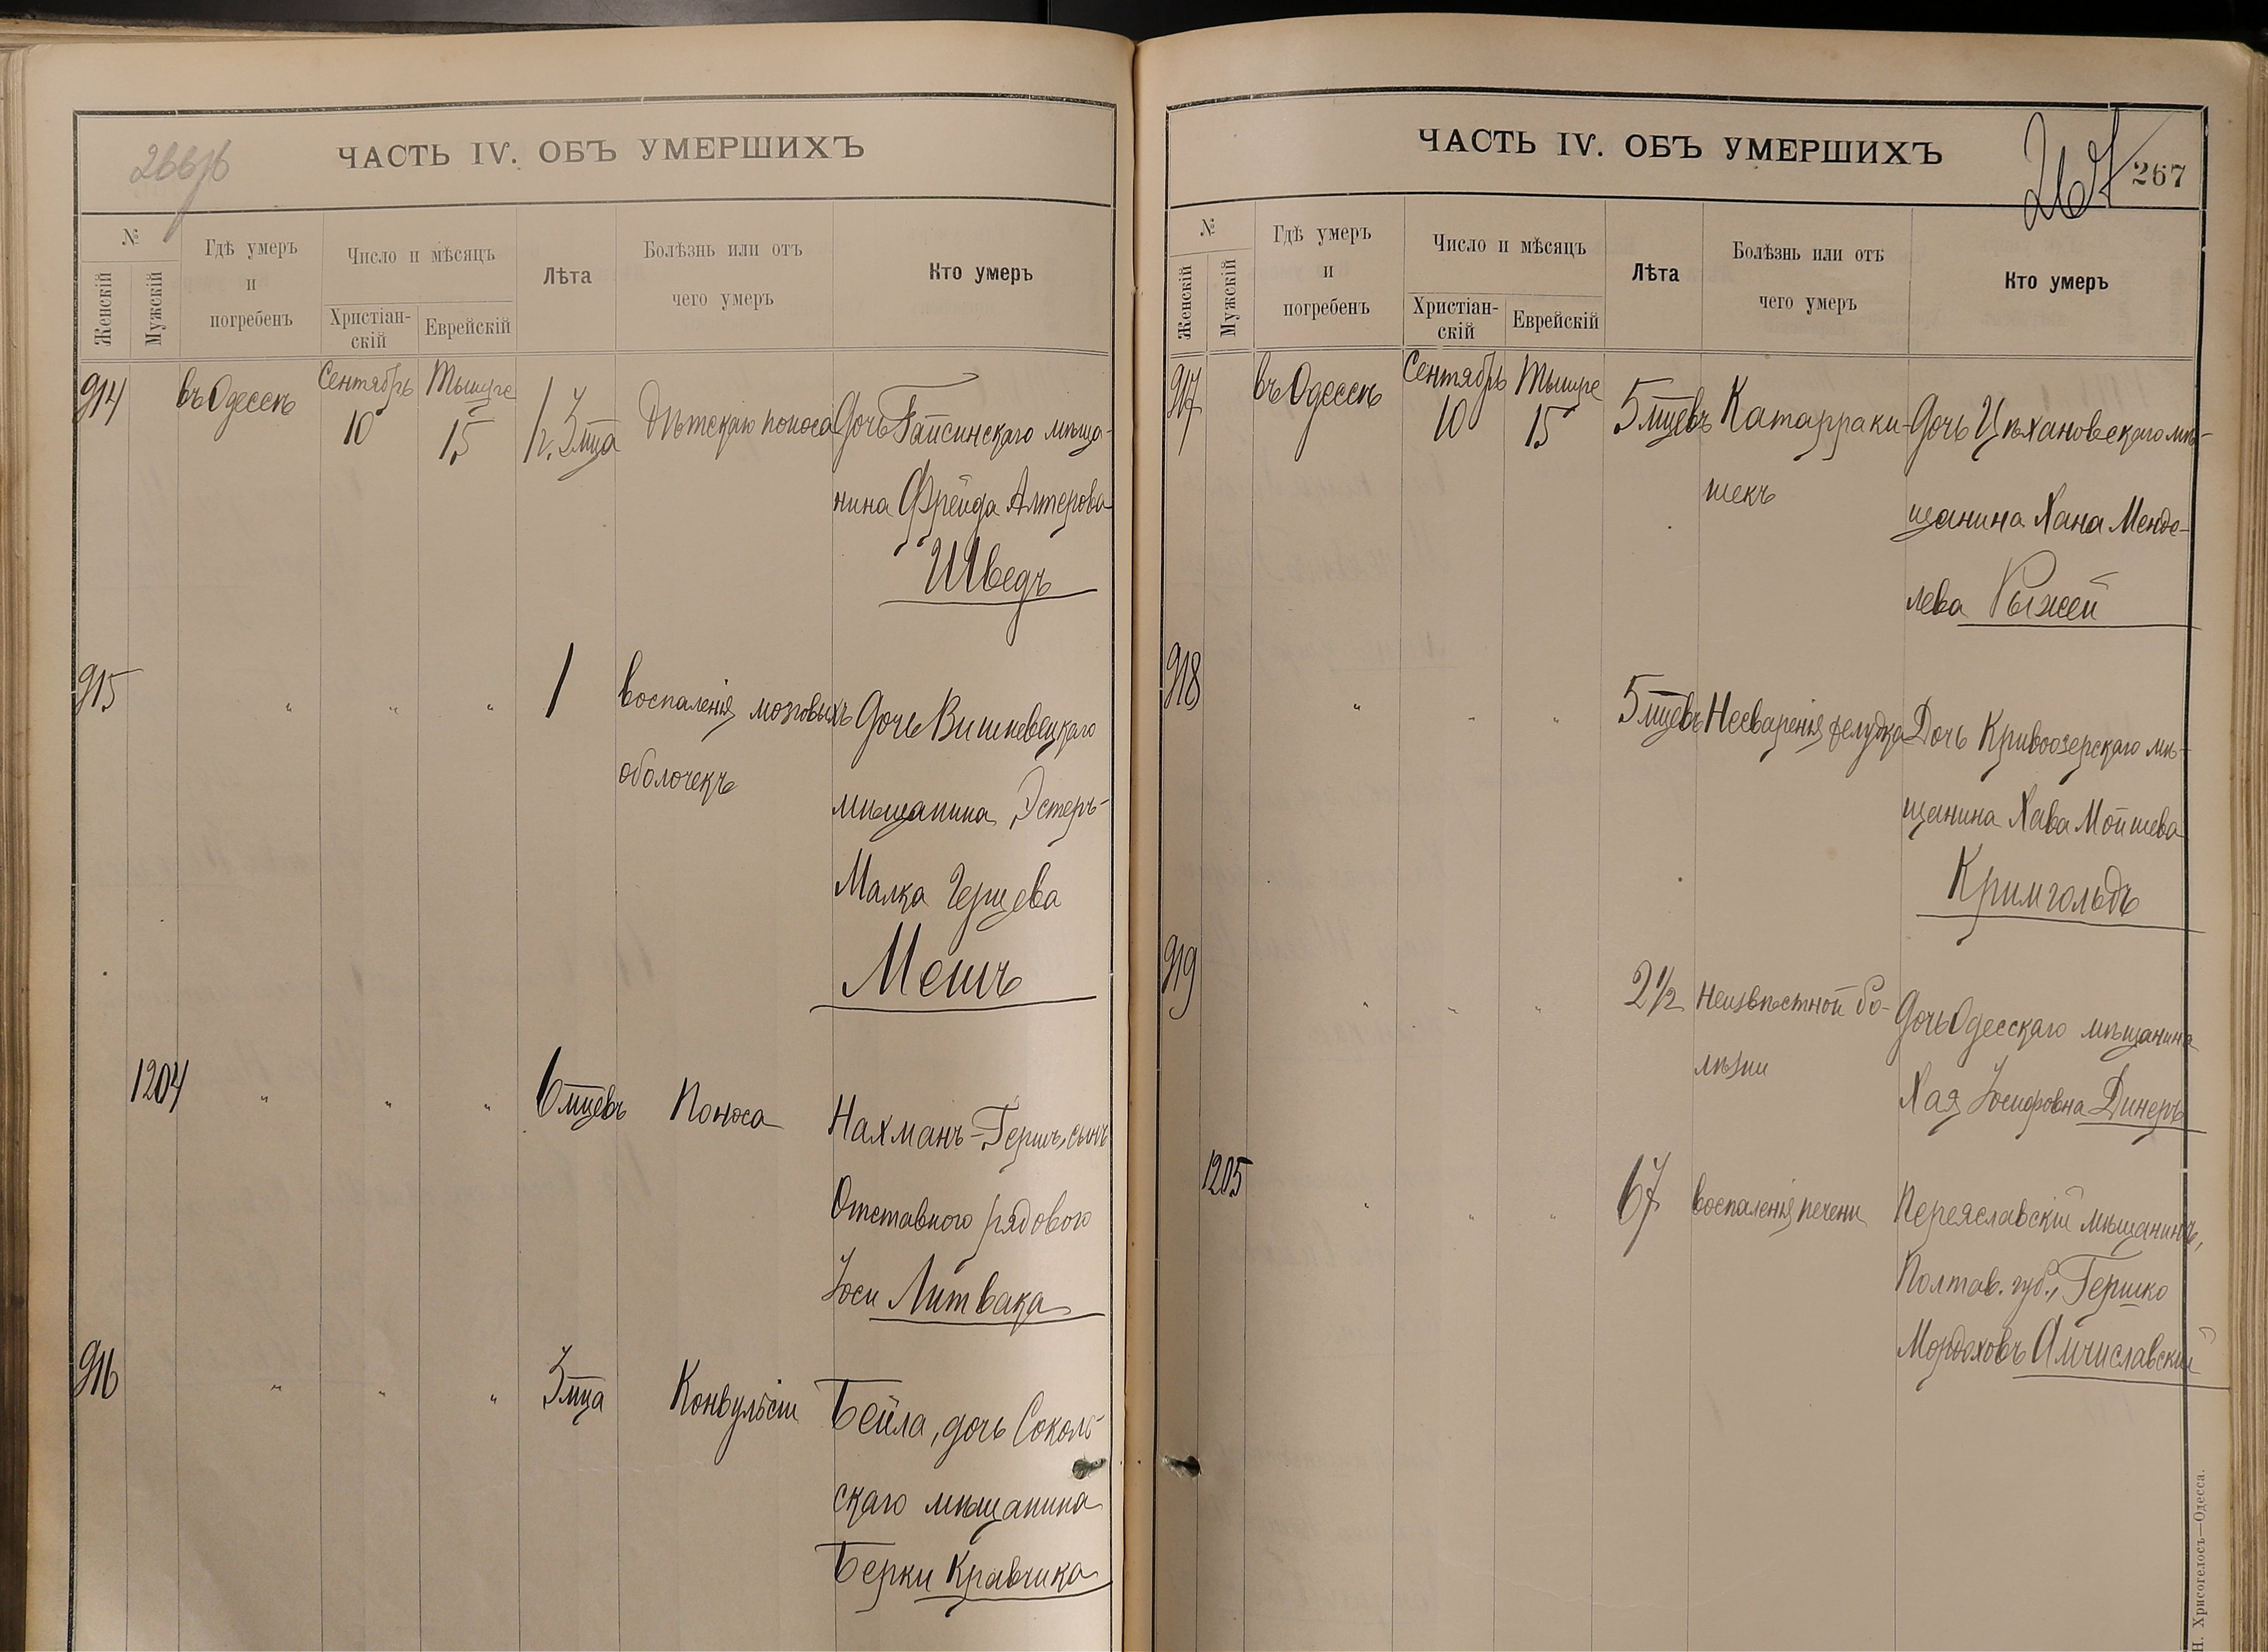 266об
ЧАСТЬ IV. ОБЪ УМЕРШИХЪ
№
Женскій
Мужскій
Гдѣ умеръ
и
погребенъ
Число и мѣсяцъ
Христіан-
скій
Еврейскій
Лѣта
Болѣзнь или отъ
чего умеръ
Кто умеръ
914 въ Одессѣ Сентябрь 10 Тышре 15 1 г. 3 мца Дѣтскаго поноса Дочь Гайсинскаго мѣща-
нина Фрейда Алтерова
Шведъ
915 " " " 1 воспаленія мозговыхъ Дочь Вишневецкаго
оболочекъ мѣщанина Эстеръ-
Малка Герцева
Мешъ
1204 " " " 6 мцевъ Поноса Нахманъ-Гершъ, сынъ
Отставного рядового
Іоси Литвака
916 " " " 3 мца Конвульсіи Бейла, дочь Соколь-
скаго мѣщанина
Берки Кравчика
ЧАСТЬ IV. ОБЪ УМЕРШИХЪ
267
267
№
Женскій
Мужскій
Гдѣ умеръ
и
погребенъ
Число и мѣсяцъ
Христіан-
скій
Еврейскій
Лѣта
Болѣзнь или отъ
чего умеръ
Кто умеръ
917 въ Одессѣ Сентябрь 10 Тышре 15 5 мцевъ Катарра ки- Дочь Цѣхановскаго мѣ-
шекъ щанина Хана Менде-
лева Рыжей
918 " " " 5 мцевъ Несваренія желудка Дочь Кривоозерскаго мѣ-
щанина Хава Мойшева
Кримгольдъ
919 " " " 2 1/2 Неизвѣстной бо- Дочь Одесскаго мѣщанина
лѣзни Хая Іосифовна Динеръ
1205 " " " 67 воспаленія печени Переяславскій мѣщанинъ,
Полтав. губ., Гершко
Мордоховъ Амчиславскій
Н. Хрисогелосъ—Одесса.